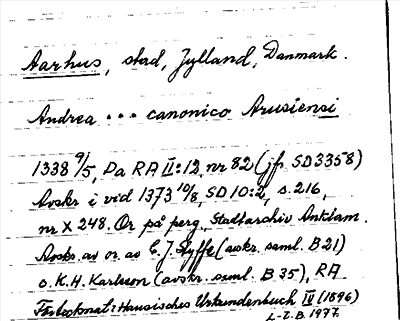 Aarhus, stad, Jylland, Danmark.
Andrea ... canonico Arusiensi
1338 9/5, Da RA II:12, nr 82 (jfr SD3358)
Avskr i vid 1373 10/8, SD 10:2, s. 216,
nr X 248. Or på perg, Stadtarchiv Anklam.
Avskr. av or. av C. J. Styffe (avskr. saml. B 21)
o. K. H. Karlson (avskr. saml. B 35), RA.
Hansisches Urkundenbuch IV (1896)
L-E. B. 1977.